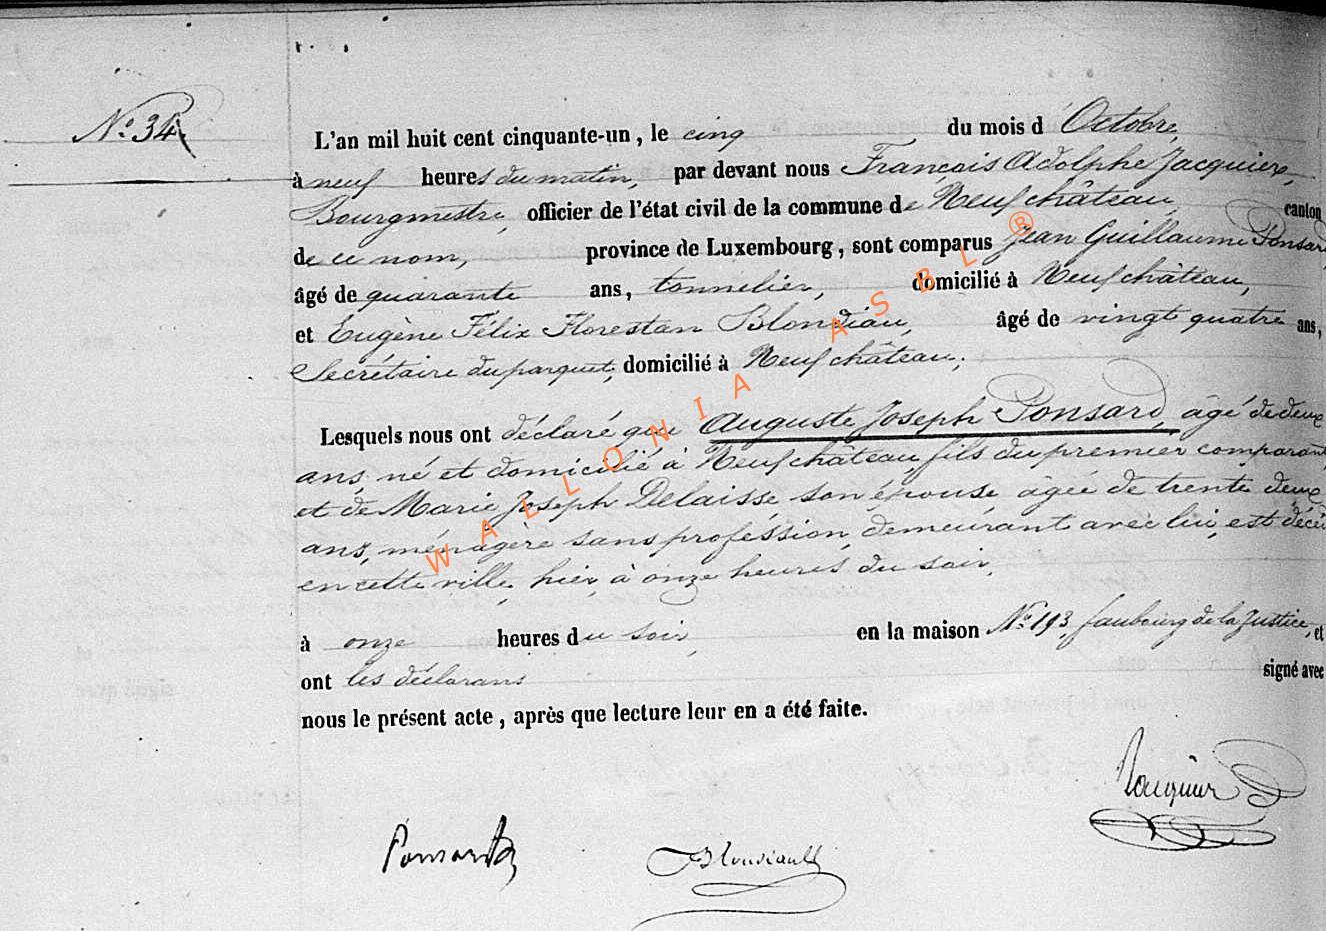 N.º 34
L'an mil huit cent cinquante-un, le cinq du mois d'Octobre,
à neuf heures du matin, par devant nous François Adolphe Jacquier,
Bourgmestre, officier de l'état civil de la commune de Neufchâteau, canton
de ce nom, province de Luxembourg, sont comparus Jean Guillaume Ponsard,
âgé de quarante ans, tonnelier, domicilié à Neufchâteau,
et Eugène Félix Florestan Blondiau, âgé de vingt quatre ans,
Secrétaire du parquet, domicilié à Neufchâteau;
Lesquels nous ont déclaré que Auguste Joseph Ponsard, âgé de deux
ans, né et domicilié à Neufchâteau, fils du premier comparant
et de Marie Joseph Delaisse son épouse âgée de trente deux
ans, ménagère sans profession, demeurant avec lui, est décé
en cette ville, hier, à onze heures du soir,
à onze heures du soir, en la maison N.º 193, faubourg de la Justice, et
ont les déclarans signé avec
nous le présent acte, après que lecture leur en a été faite.
Jacquier
Ponsard
Blondiault
WALLONIA ASBL ®